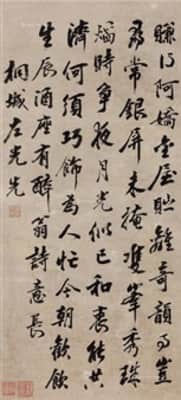 賺得阿嬌金屋貯離奇韻事豈
尋常銀屏未掩雙峯秀珠
箔時爭夜月光似已和衷能共
濟何須巧飾為人忙今朝歡飲
生辰酒座有醉翁詩意長
桐城左光先